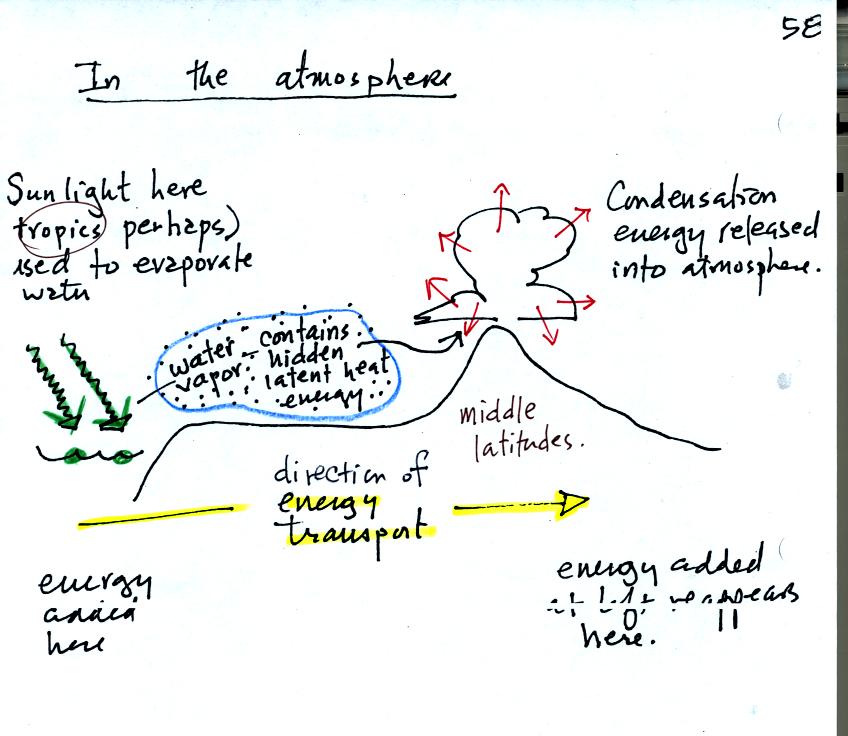 58
In the atmosphere
Sunlight here
tropics perhaps)
used to evaporate
water
Condensation
energy released
into atmosphere.
water
vapor
- contains
hidden
latent heat
energy
middle
latitudes.
direction of
energy
transport
energy
added
here
energy added
at left reappears
here.